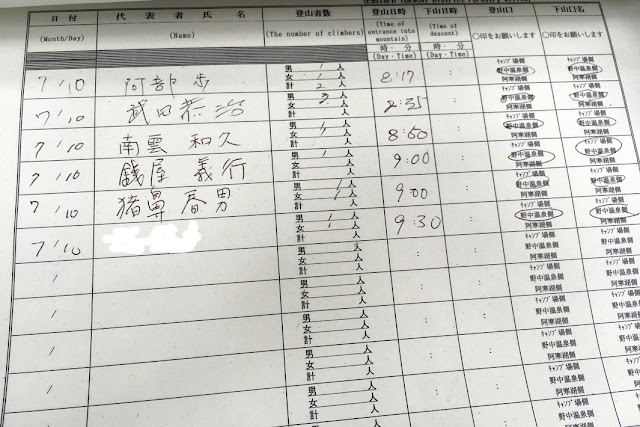 日 付 代 表 者 氏 名 登山者数 登山日時 下山日時 登山口 下山口名
(Month/Day) (Name) (The number of climbers) (Time of entrance into mountain) (Time of descent) 〇印をお願いします 〇印をお願いします
時・分 時・分
(Day・Time) (Day・Time)
男 1 人 ｷｬﾝﾌﾟ場側 ｷｬﾝﾌﾟ場側
7/10 阿部 歩 女 1 人 8:17 : 野中温泉側 野中温泉側
計 2 人 阿寒湖側 阿寒湖側
男 人 ｷｬﾝﾌﾟ場側 ｷｬﾝﾌﾟ場側
7/10 武田恭治 女 人 : 野中温泉側 野中温泉側
計 人 阿寒湖側 阿寒湖側
男 1 人 ｷｬﾝﾌﾟ場側 ｷｬﾝﾌﾟ場側
7/10 南雲 和久 女 人 : 野中温泉側 野中温泉側
計 人 阿寒湖側 阿寒湖側
男 1 人 ｷｬﾝﾌﾟ場側 ｷｬﾝﾌﾟ場側
7/10 銭屋 義行 女 人 9:00 : 野中温泉側 野中温泉側
計 人 阿寒湖側 阿寒湖側
男 1 人 ｷｬﾝﾌﾟ場側 ｷｬﾝﾌﾟ場側
7/10 猪鼻 春男 女 人 9:00 : 野中温泉側 野中温泉側
計 1 人 阿寒湖側 阿寒湖側
男 1 人 ｷｬﾝﾌﾟ場側 ｷｬﾝﾌﾟ場側
7/10 女 人 9:30 : 野中温泉側 野中温泉側
計 人 阿寒湖側 阿寒湖側
男 人 ｷｬﾝﾌﾟ場側 ｷｬﾝﾌﾟ場側
/ 女 人 : : 野中温泉側 野中温泉側
計 人 阿寒湖側 阿寒湖側
男 人 ｷｬﾝﾌﾟ場側 ｷｬﾝﾌﾟ場側
/ 女 人 : : 野中温泉側 野中温泉側
計 人 阿寒湖側 阿寒湖側
男 人 ｷｬﾝﾌﾟ場側 ｷｬﾝﾌﾟ場側
/ 女 人 : : 野中温泉側 野中温泉側
計 人 阿寒湖側 阿寒湖側
男 人 ｷｬﾝﾌﾟ場側 ｷｬﾝﾌﾟ場側
/ 女 人 : : 野中温泉側 野中温泉側
計 人 阿寒湖側 阿寒湖側
男 人 ｷｬﾝﾌﾟ場側 ｷｬﾝﾌﾟ場側
女 人 : : 野中温泉側 野中温泉側
計 人 阿寒湖側 阿寒湖側